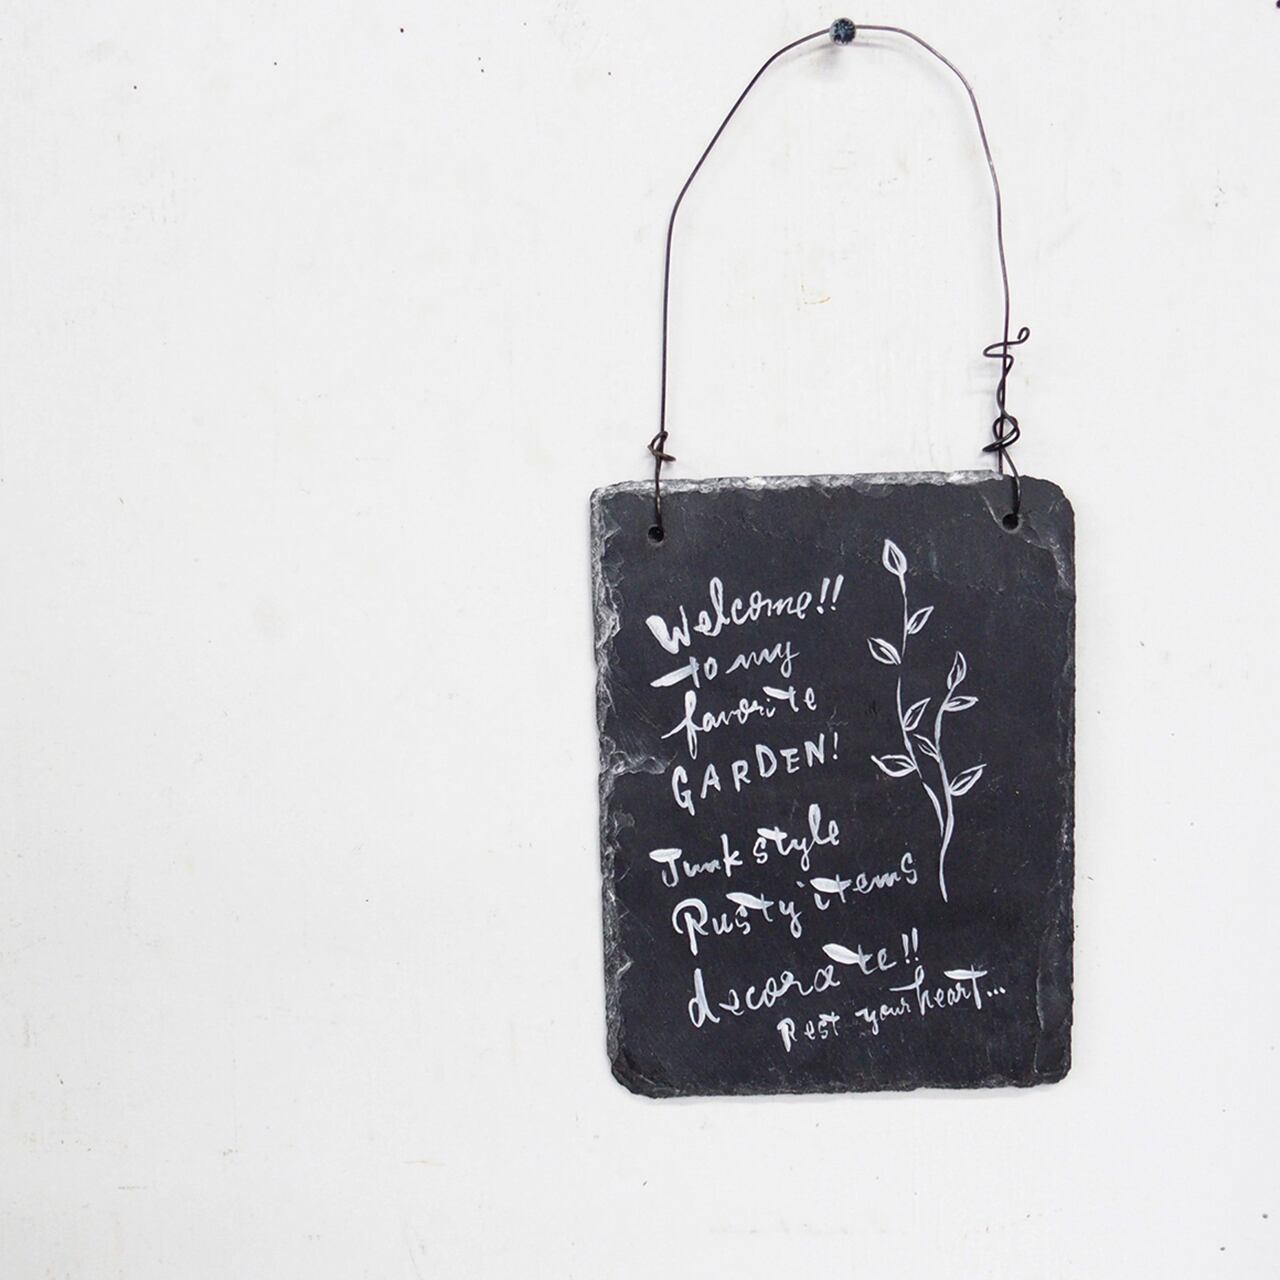 Welcome!!
to my
favorite
GARDEN!
Junk style
Rusty items
decorate!!
Rest your heart...